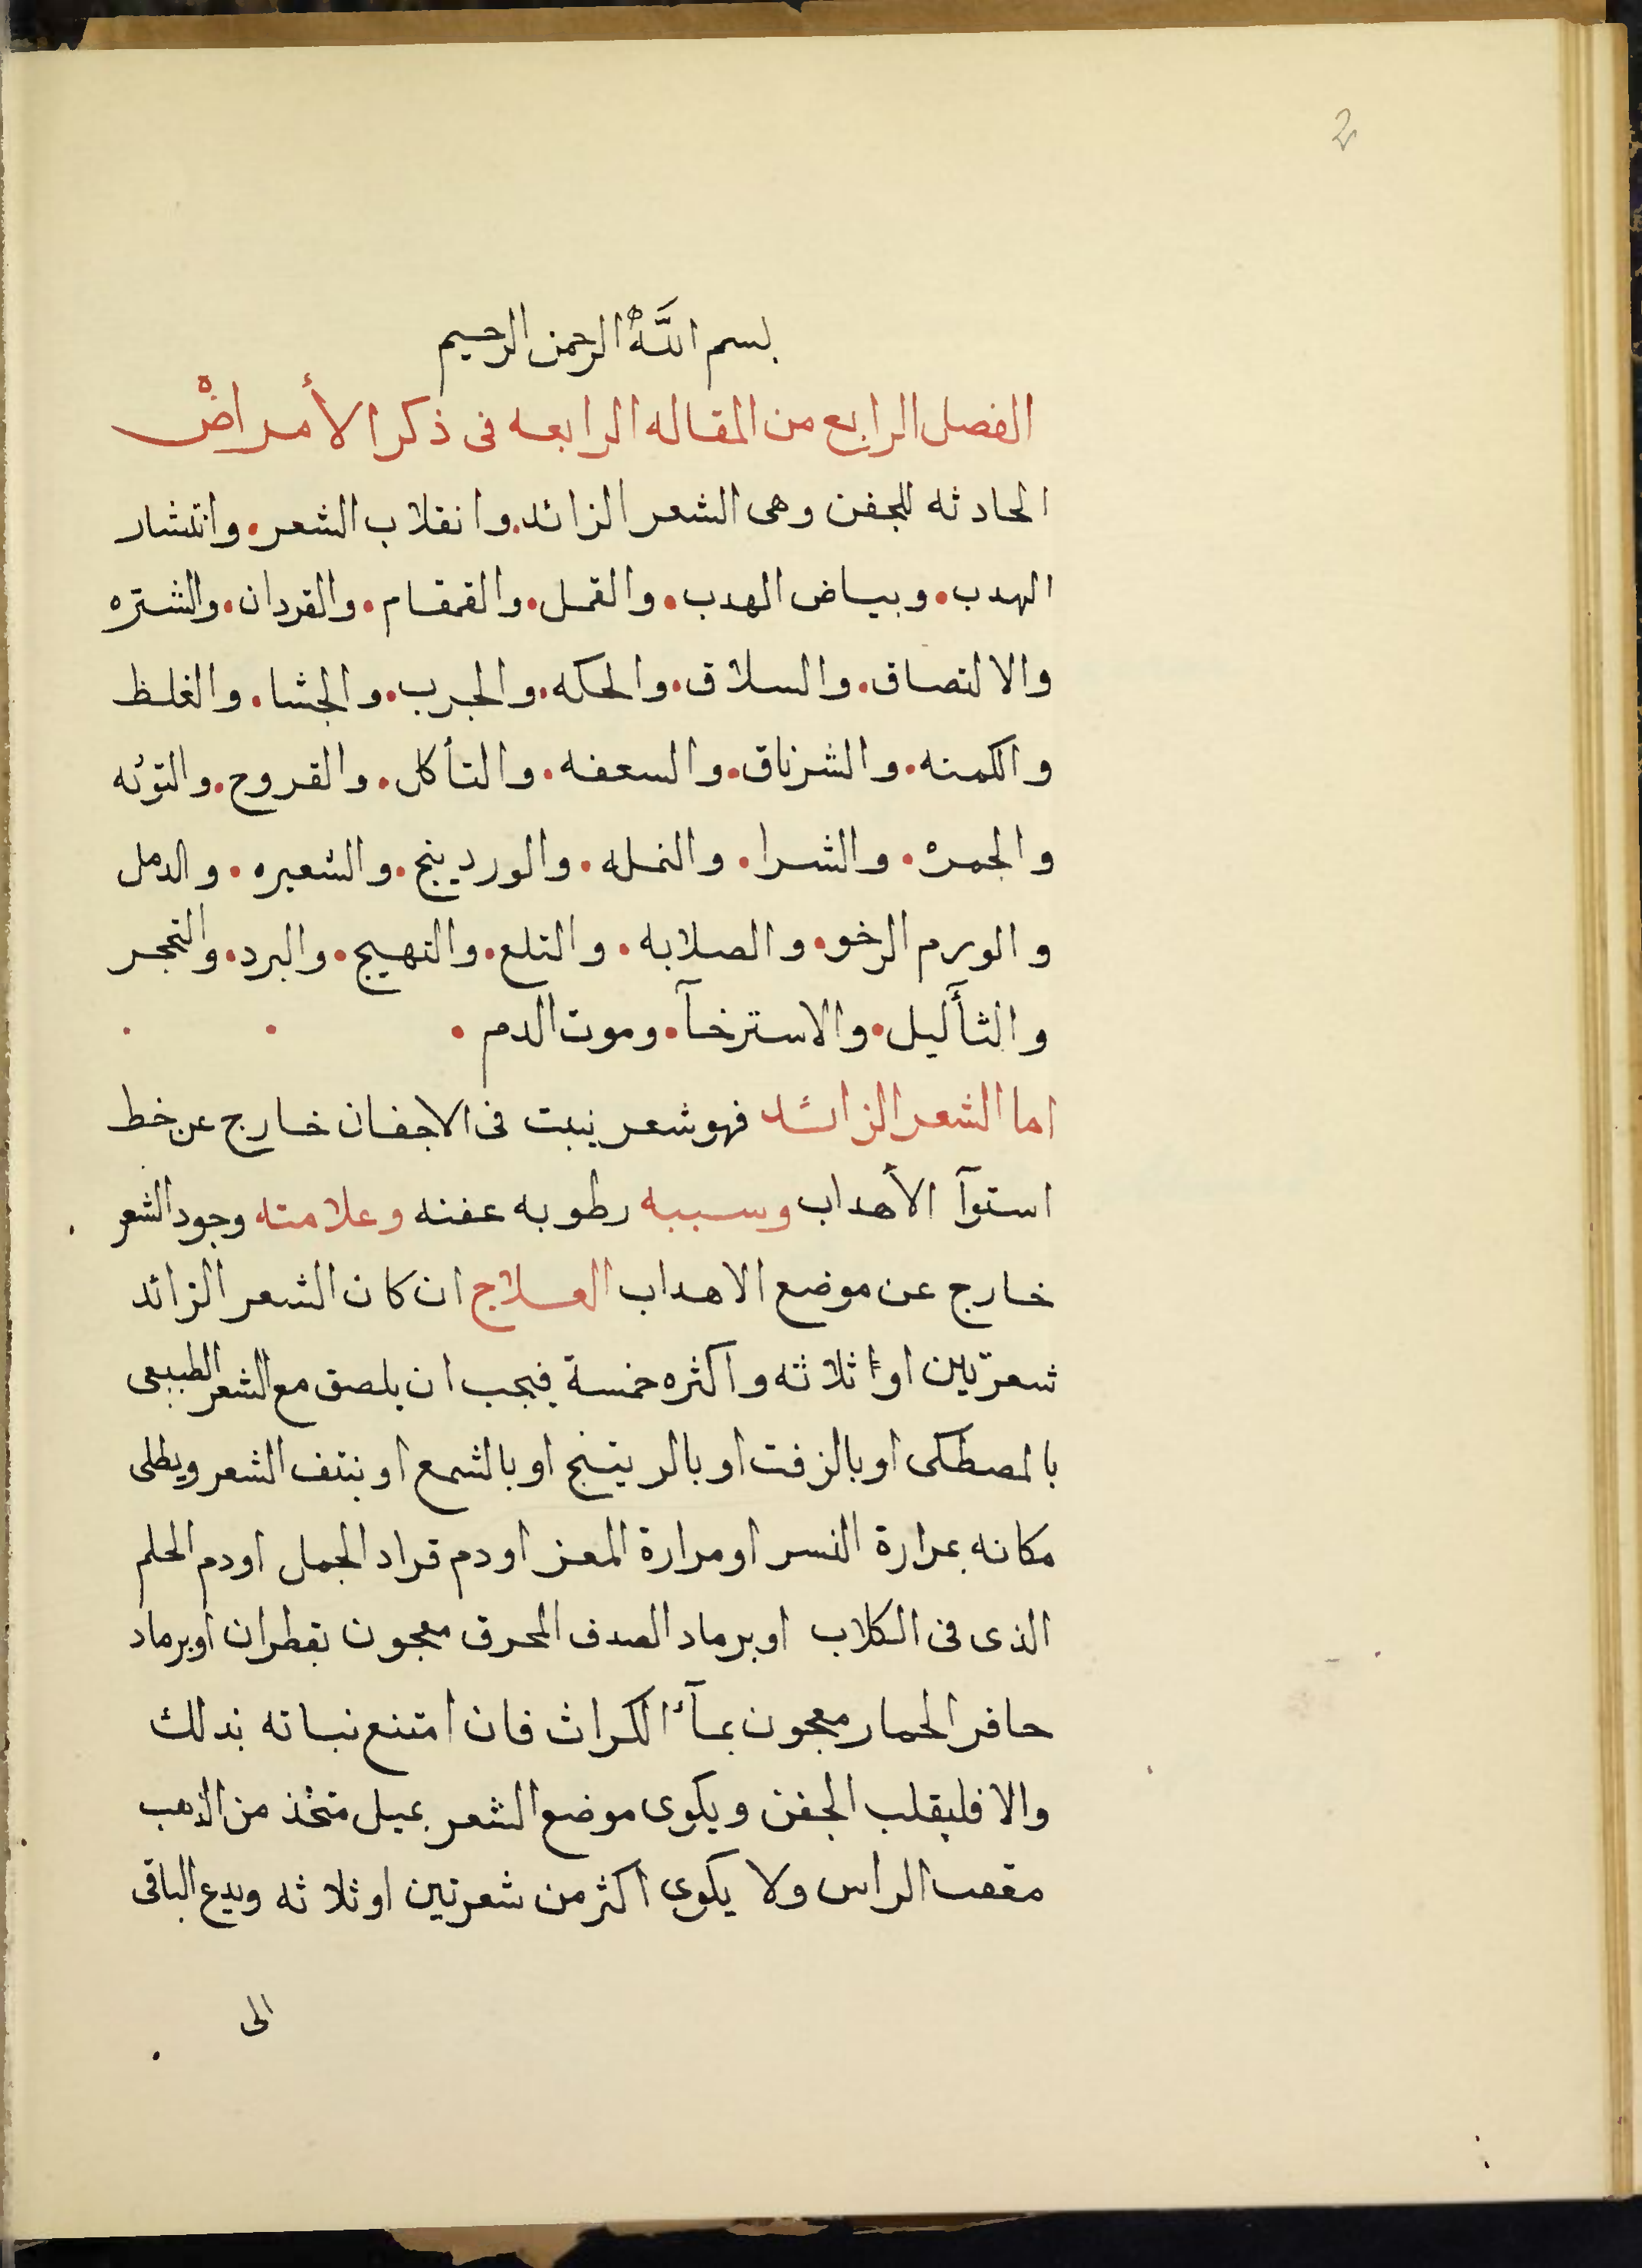 2
بسم الله الرحمن الرحيم
الفصل الرابع من المقاله الرابعه فى ذكر الأمراض
الحادثه للجفن وهى الشعر الزائد. وانقلاب الشعر. وانتشار
الهدب. وبياض الهدب. والقمل. والقمقام. والقردان. والشتره
والالتصاق. والسلاق. والحكه. والجرب. والجشا. والغلظ
والكمنه. والشرناق. والسعفه. والتأكل. والقروح. والتوثه
والجمره. والشرا. والنمله. والوردينج. والشعيره. والدمل
والورم الرخو. والصلابه. والتلع. والتهيج. والبرد. والتحجر
والثأليل. والاسترخآ. وموت الدم.
اما الشعر الزائد فهو شعر ينبت فى الاجفان خارج عن خط
استوآ الأهداب وسببه رطوبه عفنه وعلامته وجود الشعر
خارج عن موضع الاهداب العلاج ان كان الشعر الزائد
شعرتين او ثلاثه واكثره خمسة فيجب ان يلصق مع الشعر الطبيعى
بالمصطكى او بالزفت او بالريتينج او بالشمع او ينتف الشعر ويطلى
مكانه بمرارة النسر او مرارة المعز او دم قراد الجمل او دم الحلم
الذى فى الكلاب او برماد الصدف المحرق معجون بقطران او برماد
حافر الحمار معجون بمآء الكراث فان امتنع نباته بذلك
والا فليقلب الجفن ويكوى موضع الشعر بميل متخذ من الذهب
معقف الراس ولا يكوى اكثر من شعرتين او ثلاثه ويدع الباقى
الى